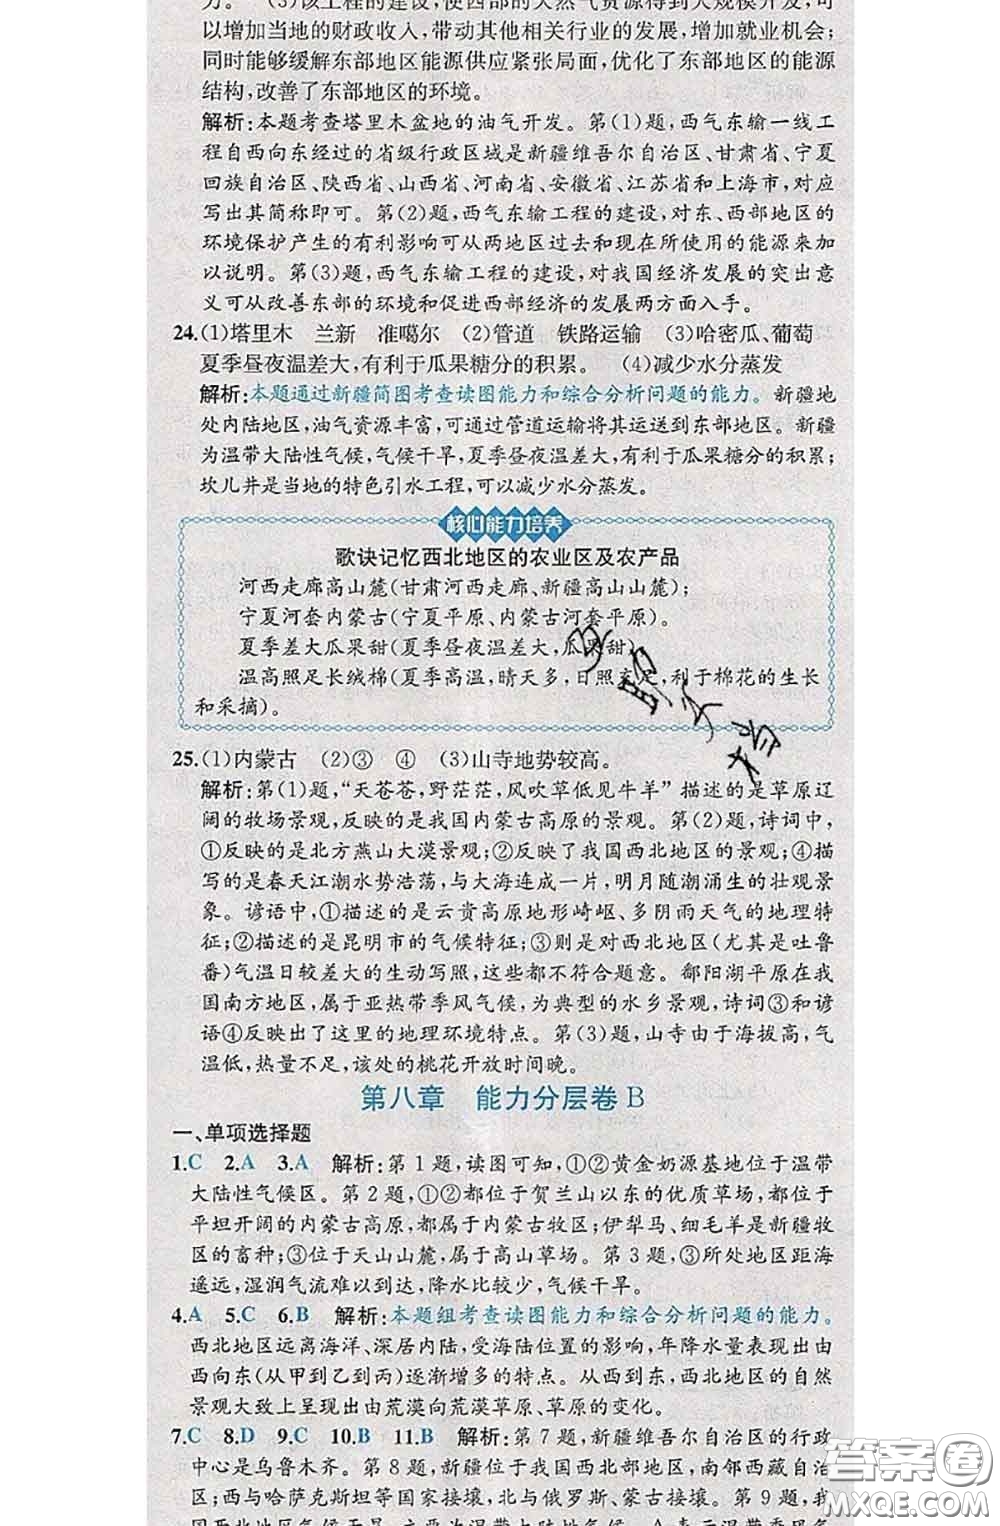 力。(3)该工程的建设,使西部的天然气资源得到大规模开发,可
以增加当地的财政收入,带动其他相关行业的发展,增加就业机会;
同时能够缓解东部地区能源供应紧张局面,优化了东部地区的能源
结构,改善了东部地区的环境。
解析:本题考查塔里木盆地的油气开发。第(1)题,西气东输一线工
程自西向东经过的省级行政区域是新疆维吾尔自治区、甘肃省、宁夏
回族自治区、陕西省、山西省、河南省、安徽省、江苏省和上海市,对应
写出其简称即可。第(2)题,西气东输工程的建设,对东、西部地区的
环境保护产生的有利影响可从两地区过去和现在所使用的能源来加
以说明。第(3)题,西气东输工程的建设,对我国经济发展的突出意
义可从改善东部的环境和促进西部经济的发展两方面入手。
24.(1)塔里木 兰新 准噶尔 (2)管道 铁路运输 (3)哈密瓜、葡萄
夏季昼夜温差大,有利于瓜果糖分的积累。 (4)减少水分蒸发
解析:本题通过新疆简图考查读图能力和综合分析问题的能力。新疆地
处内陆地区,油气资源丰富,可通过管道运输将其运送到东部地区。新疆
为温带大陆性气候,气候干旱,夏季昼夜温差大,有利于瓜果糖分的积累;
坎儿井是当地的特色引水工程,可以减少水分蒸发。
核心能力培养
歌诀记忆西北地区的农业区及农产品
河西走廊高山麓(甘肃河西走廊、新疆高山山麓);
宁夏河套内蒙古(宁夏平原、内蒙古河套平原)。
夏季差大瓜果甜(夏季昼夜温差大,瓜果甜)
温高照足长绒棉(夏季高温,晴天多,日照充足,利于棉花的生长
和采摘)。
25.(1)内蒙古 (2)③ ④ (3)山寺地势较高。
解析:第(1)题,“天苍苍,野茫茫,风吹草低见牛羊”描述的是草原辽
阔的牧场景观,反映的是我国内蒙古高原的景观。第(2)题,诗词中,
①反映的是北方燕山大漠景观;②反映了我国西北地区的景观;④描
写的是春天江潮水势浩荡,与大海连成一片,明月随潮涌生的壮观景
象。谚语中,①描述的是云贵高原地形崎岖、多阴雨天气的地理特
征;②描述的是昆明市的气候特征;③则是对西北地区(尤其是吐鲁
番)气温日较差大的生动写照,这些都不符合题意。鄱阳湖平原在我
国南方地区,属于亚热带季风气候,为典型的水乡景观,诗词③和谚
语④反映出了这里的地理环境特点。第(3)题,山寺由于海拔高,气
温低,热量不足,该处的桃花开放时间晚。
第八章 能力分层卷B
一、单项选择题
1.C 2.A 3.A 解析:第1题,读图可知,①②黄金奶源基地位于温带
大陆性气候区。第2题,①②都位于贺兰山以东的优质草场,都位于
平坦开阔的内蒙古高原,都属于内蒙古牧区;伊犁马、细毛羊是新疆牧
区的畜种;③位于天山山麓,属于高山草场。第3题,③所处地区距海
遥远,湿润气流难以到达,降水比较少,气候干旱。
4.A 5.C 6.B 解析:本题组考查读图能力和综合分析问题的能力。
西北地区远离海洋、深居内陆,受海陆位置的影响,年降水量表现出由
西向东(从甲到乙到丙)逐渐增多的特点。从西到东,西北地区的自然
景观大致上呈现出由荒漠向荒漠草原、草原的变化。
7.C 8.D 9.C 10.B 11.B 解析:第7题,新疆维吾尔自治区的行政
中心是乌鲁木齐。第8题,新疆位于我国西北部地区,南邻西藏自治
区;西与哈萨克斯坦等国家接壤,北与俄罗斯、蒙古接壤。第9题,我
答案圈
MXQE.COM